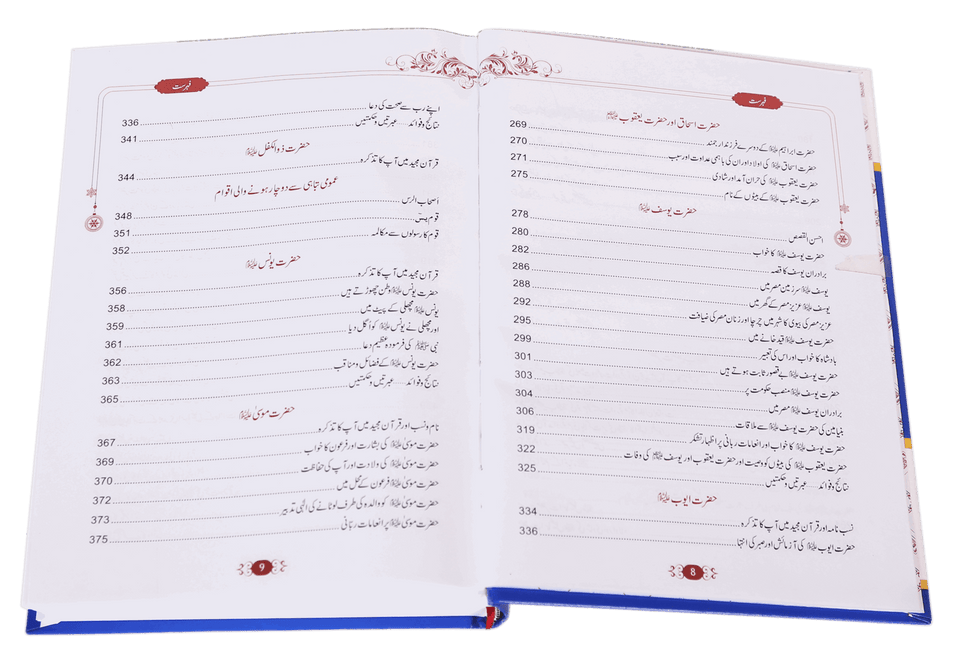 فہرست
حضرت اسحاق اور حضرت یعقوب علیہما السلام
حضرت ابراہیم علیہ السلام کے دوسرے فرزند ارجمند 269
حضرت اسحاق علیہ السلام کی اولاد اور ان کی باہمی عداوت اور سبب 270
حضرت یعقوب علیہ السلام کی حران آمد اور شادی 271
حضرت یعقوب علیہ السلام کے بیٹوں کے نام 275
حضرت یوسف علیہ السلام
احسن القصص 278
حضرت یوسف علیہ السلام کا خواب 280
برادران یوسف کا قصہ 282
یوسف علیہ السلام سرزمین مصر میں 286
یوسف علیہ السلام عزیز مصر کے گھر میں 288
عزیز مصر کی بیوی کا شہر میں چرچا اور زنان مصر کی ضیافت 292
حضرت یوسف علیہ السلام قید خانے میں 295
بادشاہ کا خواب اور اس کی تعبیر 299
حضرت یوسف علیہ السلام بے قصور ثابت ہوتے ہیں 301
حضرت یوسف علیہ السلام منصب حکومت پر 303
برادران یوسف علیہ السلام مصر میں 304
بنیامین کی حضرت یوسف علیہ السلام سے ملاقات 306
حضرت یوسف علیہ السلام کا خواب اور انعامات ربانی پر اظہار تشکر 319
حضرت یعقوب علیہ السلام کی بیٹوں کو وصیت اور حضرت یعقوب اور یوسف علیہما السلام کی وفات 322
نتائج و فوائد — عبرتیں و حکمتیں 325
حضرت ایوب علیہ السلام
نسب نامہ اور قرآن مجید میں آپ کا تذکرہ 334
حضرت ایوب علیہ السلام کی آزمائش اور صبر کی انتہا 336
8
فہرست
اپنے رب سے صحت کی دعا 336
نتائج و فوائد — عبرتیں و حکمتیں 341
حضرت ذوالکفل علیہ السلام
قرآن مجید میں آپ کا تذکرہ 344
عمومی تباہی سے دوچار ہونے والی اقوام
اصحاب الرس 348
قوم یٰسٓ 351
قوم کا رسولوں سے مکالمہ 352
حضرت یونس علیہ السلام
قرآن مجید میں آپ کا تذکرہ 356
حضرت یونس علیہ السلام وطن چھوڑتے ہیں 358
یونس علیہ السلام مچھلی کے پیٹ میں 359
اور مچھلی نے یونس علیہ السلام کو اگل دیا 361
نبی ﷺ کی فرمودہ عظیم دعا 362
حضرت یونس علیہ السلام کے فضائل و مناقب 363
نتائج و فوائد — عبرتیں و حکمتیں 365
حضرت موسیٰ علیہ السلام
نام و نسب اور قرآن مجید میں آپ کا تذکرہ 367
حضرت موسیٰ علیہ السلام کی بشارت اور فرعون کا خواب 369
حضرت موسیٰ علیہ السلام کی ولادت اور آپ کی حفاظت 370
حضرت موسیٰ علیہ السلام فرعون کے محل میں 372
حضرت موسیٰ علیہ السلام کو والدہ کی طرف لوٹانے کی الٰہی تدبیر 373
حضرت موسیٰ علیہ السلام پر انعامات ربانی 375
9